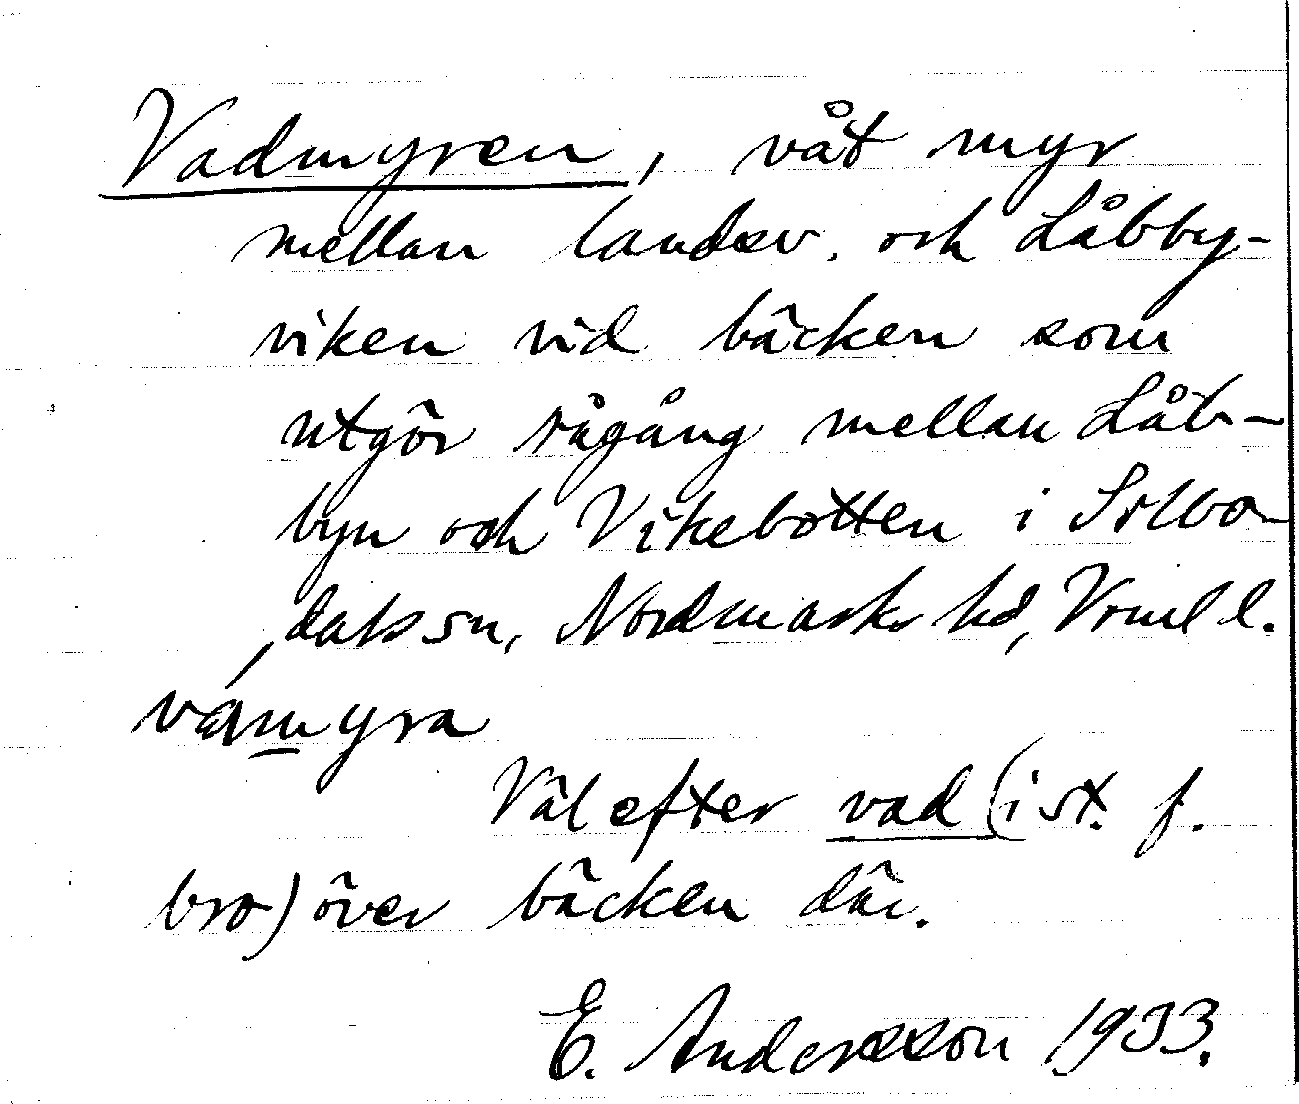 Vadmyren, våt myr
mellan landsv. och Låbby-
viken vid bäcken som
utgör rågång mellan Låb-
byn och Vikebotten i Silbo-
dals sn, Nordmarks hd, Vrml l.
vámyra
Väl efter vad (i st. f.
bro) över bäcken där.
E. Andersson 1933.